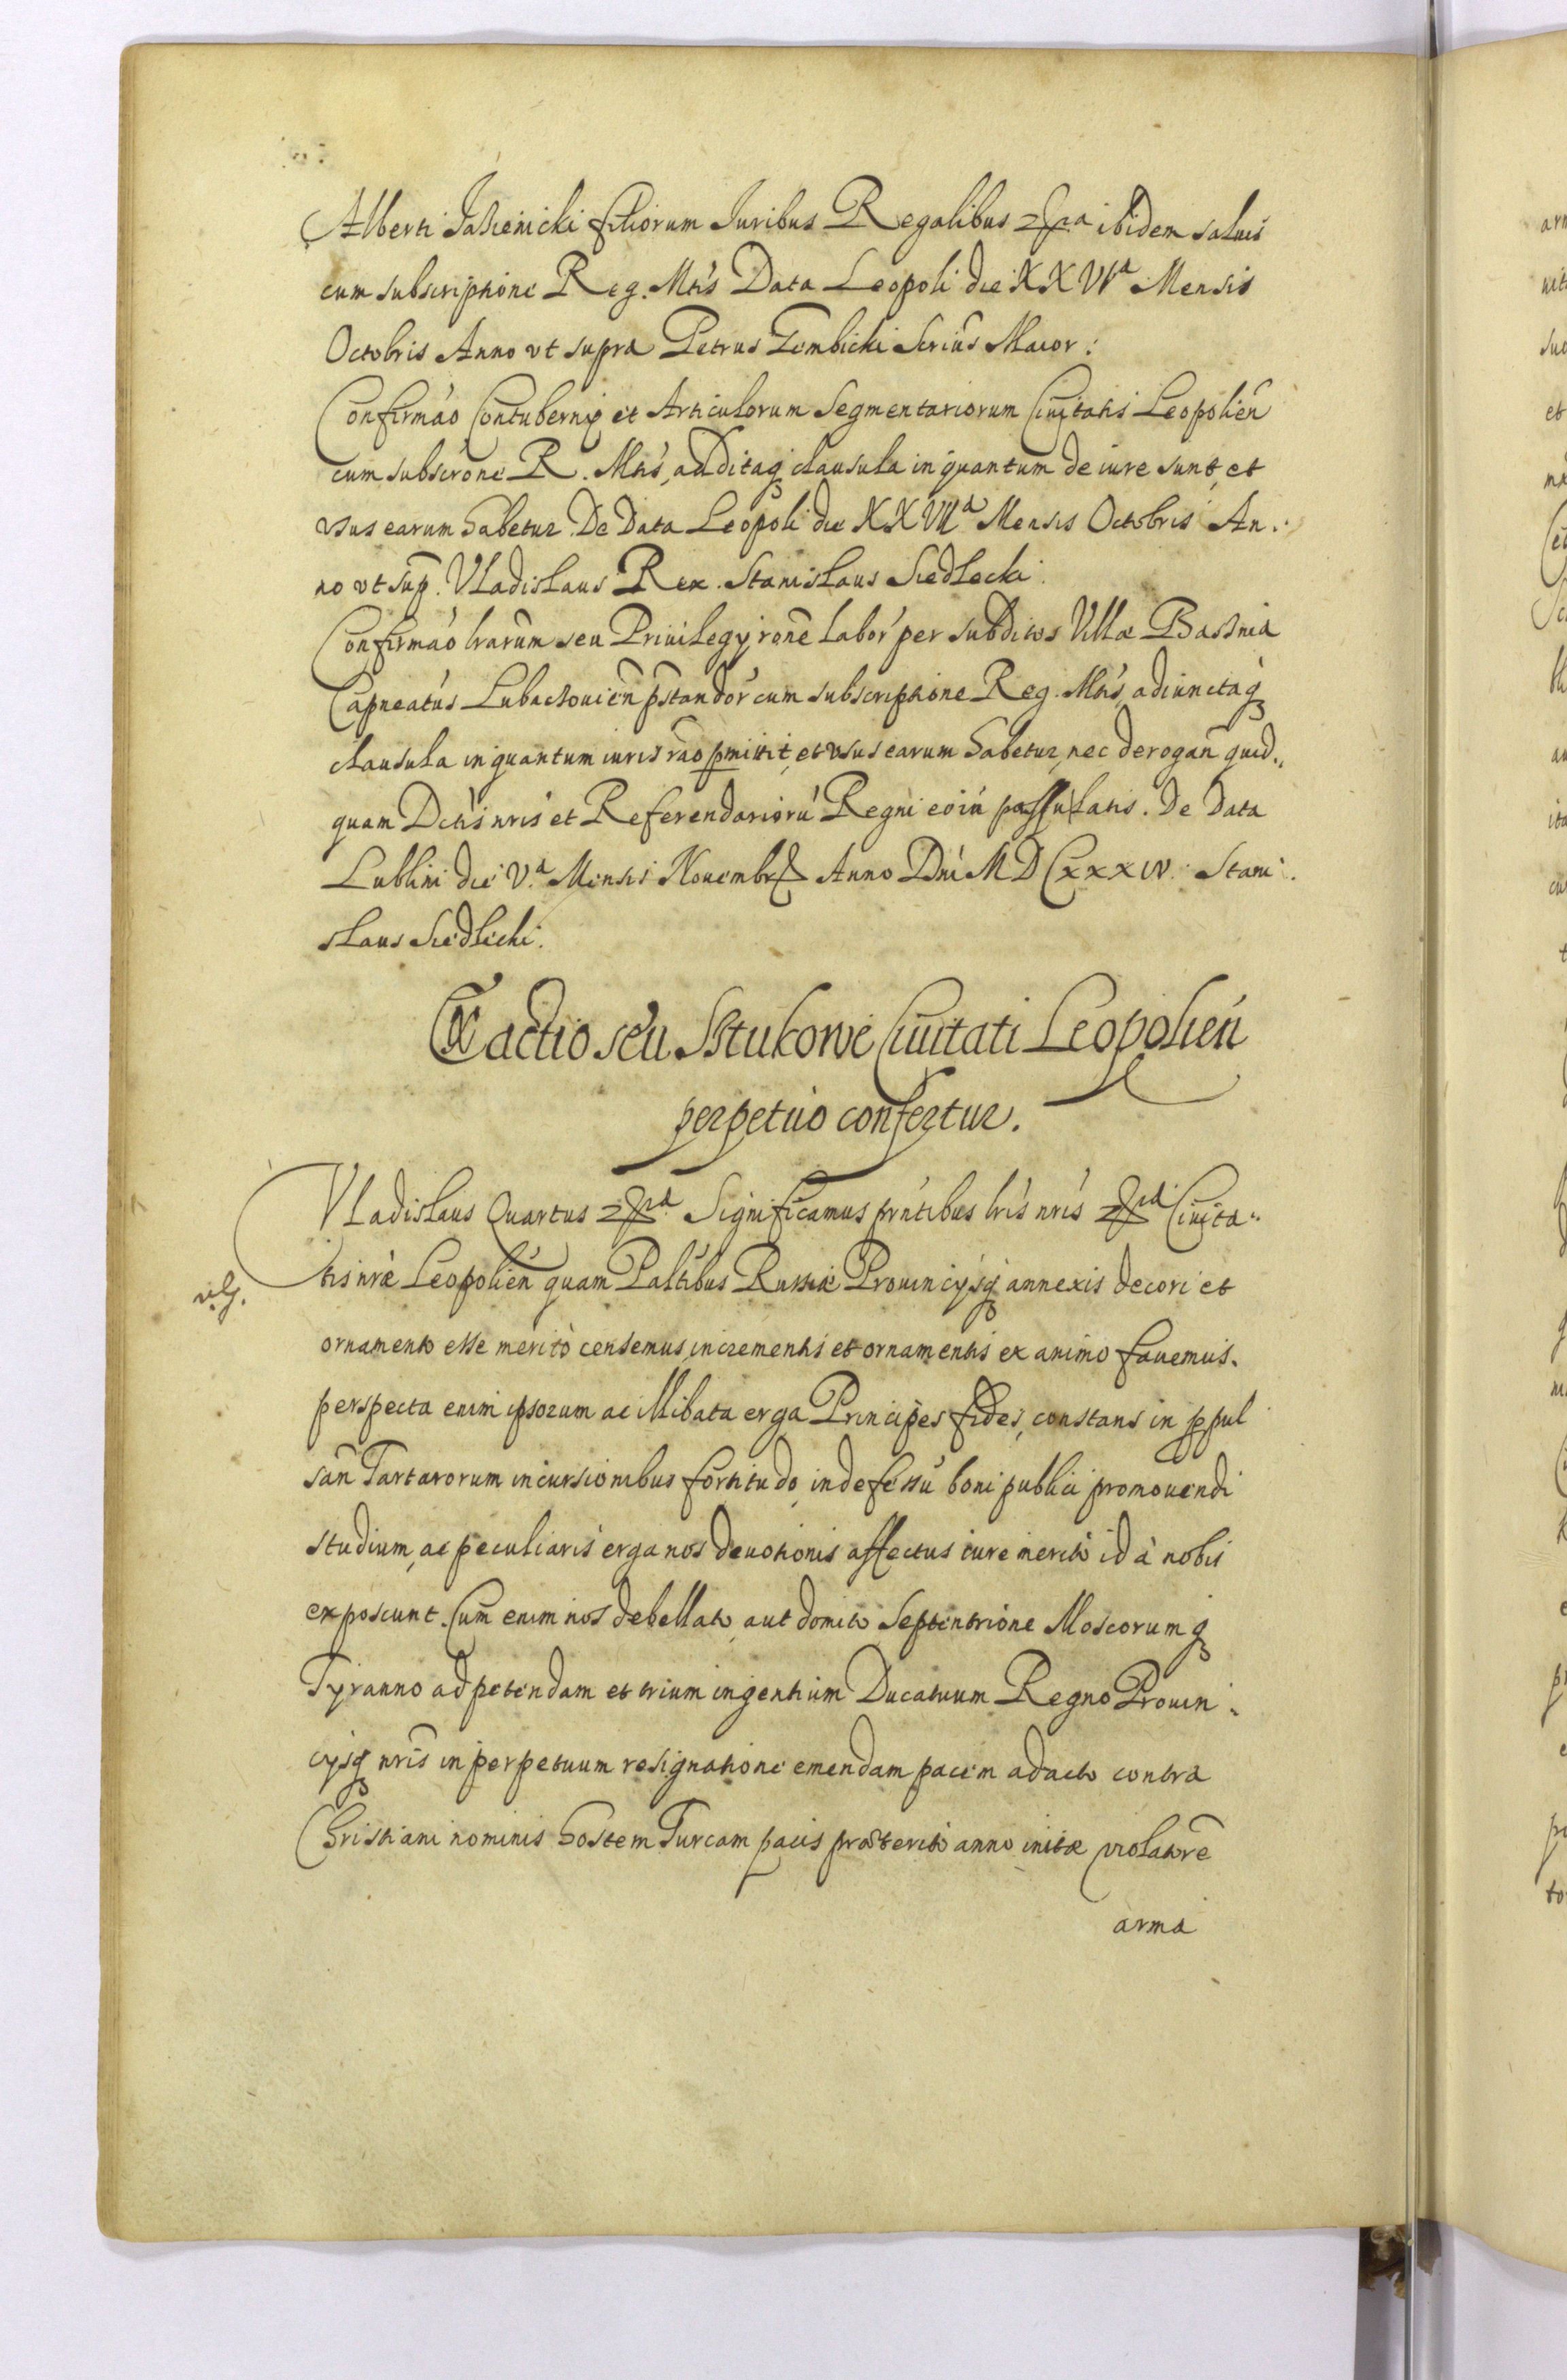 Alberti Jasienicki filiorum Iuribus Regalibus &cra ibidem saluis
cum subscriptione Reg. Mtis Data Leopoli die XXVIa Mensis
Octobris Anno vt supra Petrus Gembicki Secrius Maior:
Confirmao Contubernij et Articulorum Segmentariorum Ciuitatis Leopolien
cum subscrone R. Mtis, additaq clausula in quantum de iure sunt, et
vsus earum habetur. De Data Leopoli die XXVIIa Mensis Octobris An-
no vt sup. Vladislaus Rex. Stanislaus Siedlecki.
Confirmao lrarum seu Priuilegij rone labor per subditos Villæ Basznia
Capneatus Lubachouien pstandor cum subscriptione Reg. Mtis, adiunctaq
clausula in quantum iuris rao pmittit, et vsus earum habetur, nec derogan quid-
quam Dctis nris et Referendarioru Regni eoru postulatis. De Data
Lublini die Va Mensis Nouembr Anno Dni MDCXXXIV. Stani-
slaus Siedlecki.
Exactio seu Sztukowe Ciuitati Leopolien
perpetuo confertur.
Vladislaus Quartus &cra Significamus prntibus lris nris &cra Ciuita-
tis nræ Leopolien quam Paltibus Russiæ Prouincijsq annexis decori et
ornamento esse merito censemus, incrementis et ornamentis ex animo fauemus.
perspecta enim ipsorum ac illibata erga Principes fides, constans in ppul
san Tartarorum incursionibus fortitudo, indefessu boni publici promouendi
studium, ac peculiaris erga nos deuotionis affectus iure merito id à nobis
exposcunt. Cum enim nos debellato aut domito Septentrione Moscorumq
Tyranno ad petendam et trium ingentium Ducatuum Regno Prouin-
cijsq nris in perpetuum resignatione emendam pacem adacto contra
Christiani nominis hostem Turcam pacis præterito anno initæ violatore
arma